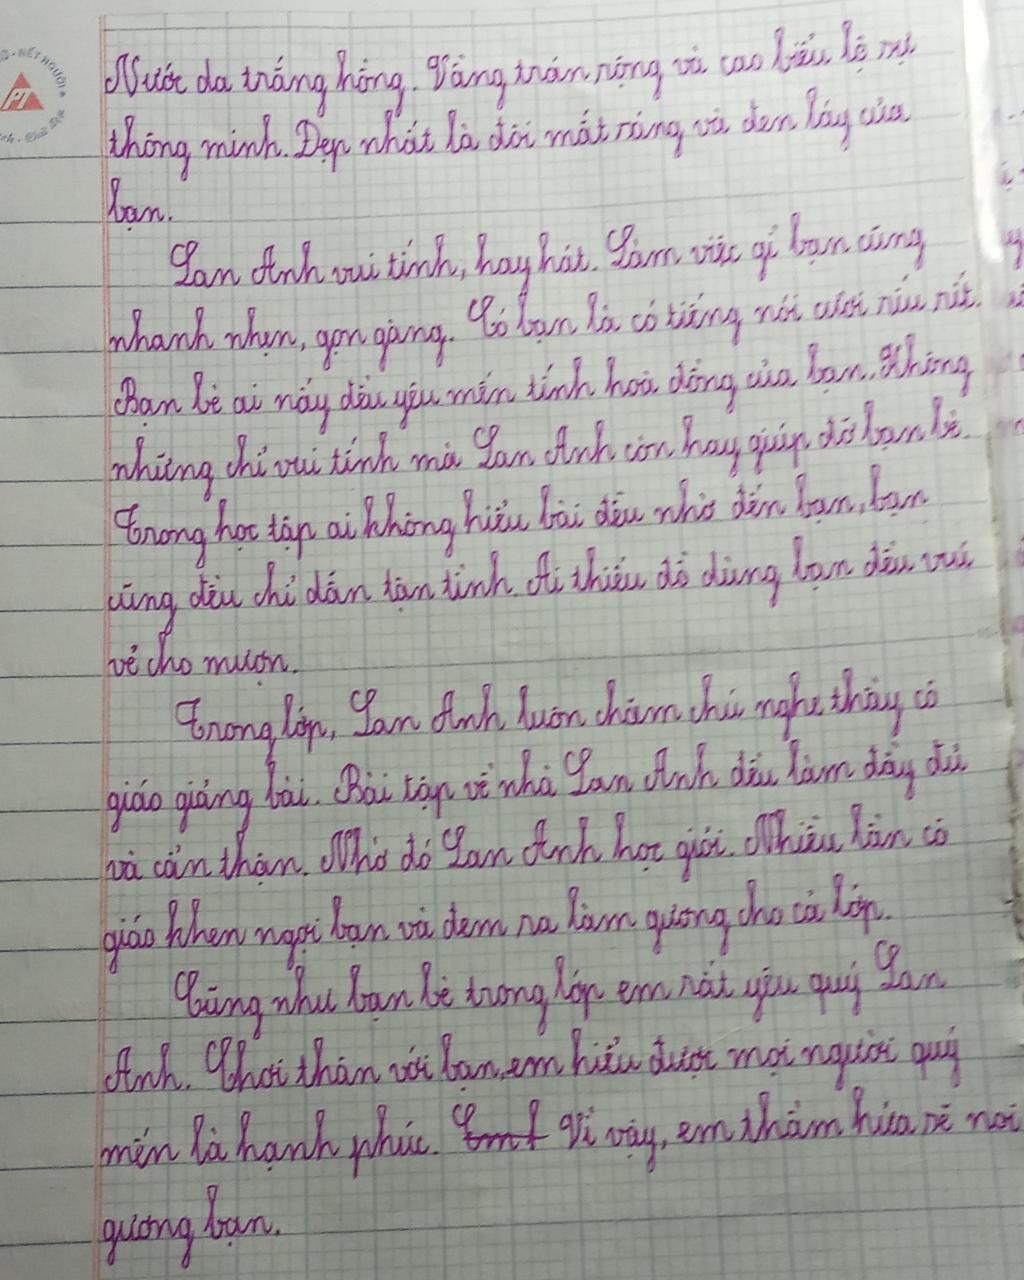 NÉT NGƯỜI
Nước da trắng hồng. Vầng trán rộng và cao biểu lộ sự
thông minh. Đẹp nhất là đôi mắt sáng và đen láy của
bạn.
Lan Anh vui tính, hay hát. Làm việc gì bạn cũng
nhanh nhẹn, gọn gàng. Có bạn là có tiếng nói cười ríu rít.
Bạn bè ai nấy đều yêu mến tính hoà đồng của bạn. Không
những chỉ vui tính mà Lan Anh còn hay giúp đỡ bạn bè.
Trong học tập ai không hiểu bài đều nhờ đến bạn, bạn
cũng đều chỉ dẫn tận tình. Ai thiếu đồ dùng bạn đều vui
vẻ cho mượn.
Trong lớp, Lan Anh luôn chăm chú nghe thầy cô
giáo giảng bài. Bài tập về nhà Lan Anh đều làm đầy đủ
và cẩn thận. Nhờ đó Lan Anh học giỏi. Nhiều lần cô
giáo khen ngợi bạn và đem ra làm gương cho cả lớp.
Cũng như bạn bè trong lớp em rất yêu quý Lan
Anh. Chơi thân với bạn, em hiểu được mọi người quý
mến là hạnh phúc. Vì vậy, em thầm hứa sẽ noi
gương bạn.